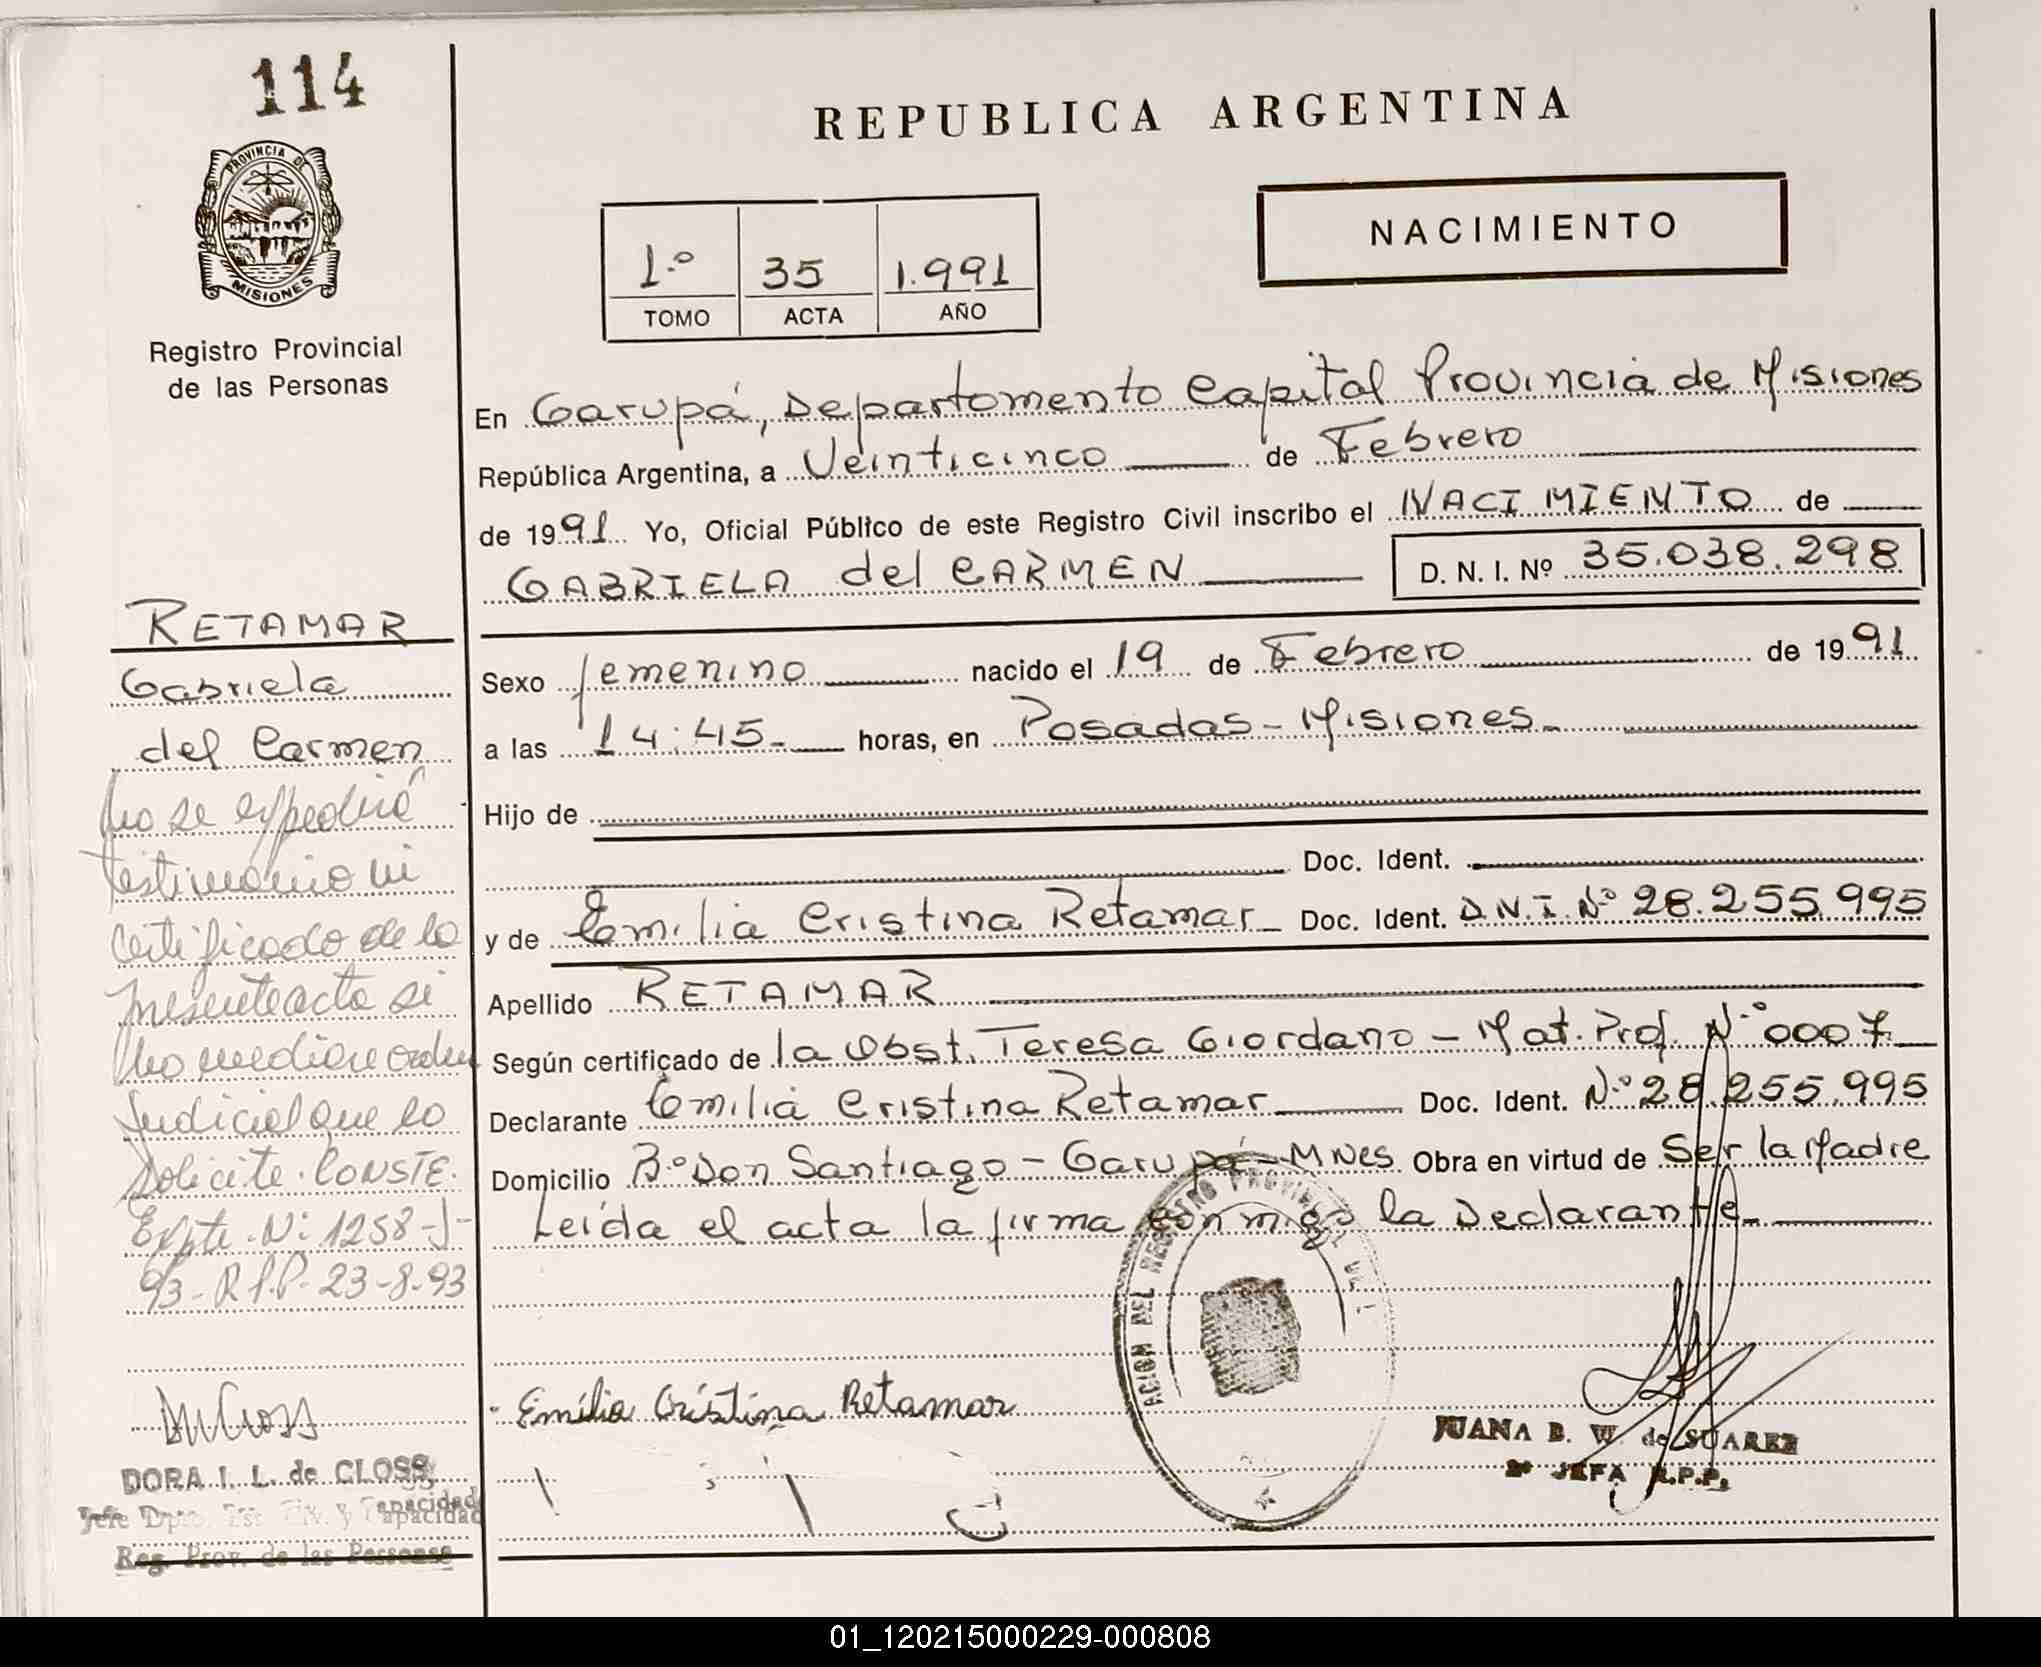 114
REPUBLICA ARGENTINA
PROVINCIA DE
MISIONES
NACIMIENTO
1.º 35 1.991
TOMO ACTA AÑO
Registro Provincial
de las Personas
En Garupá, Departamento Capital Provincia de Misiones
República Argentina, a Veinticinco de Febrero
de 1991 Yo, Oficial Público de este Registro Civil inscribo el NACIMIENTO de
GABRIELA del CARMEN D. N. I. Nº 35.038.298
Sexo femenino nacido el 19 de Febrero de 1991
a las 14:45- horas, en Posadas - Misiones-
Hijo de
Doc. Ident.
y de Emilia Cristina Retamar Doc. Ident. D.N.I. Nº 28.255.995
Apellido RETAMAR
Según certificado de la Obst. Teresa Giordano - Mat. Prof. N.º 0007
Declarante Emilia Cristina Retamar Doc. Ident. N.º 28.255.995
Domicilio Bº Don Santiago - Garupá - Mnes Obra en virtud de Ser la Madre
Leída el acta la firma conmigo la Declarante
RETAMAR
Gabriela
del Carmen
No se expedirá
testimonio ni
certificado de la
presente acta si
no mediare orden
Judicial que lo
solicite. CONSTE.
Expte. Nº 1258-J-
93- R.P.P. 23-8-93
DORA I. L. de CLOSS
Jefe Dpto. Est. Civ. y Capacidad
Reg. Prov. de las Personas
Emilia Cristina Retamar
ACION DEL REGISTRO PROVINCIAL DE
JUANA B. W. de SUAREZ
2º JEFA R.P.P.
01_120215000229-000808